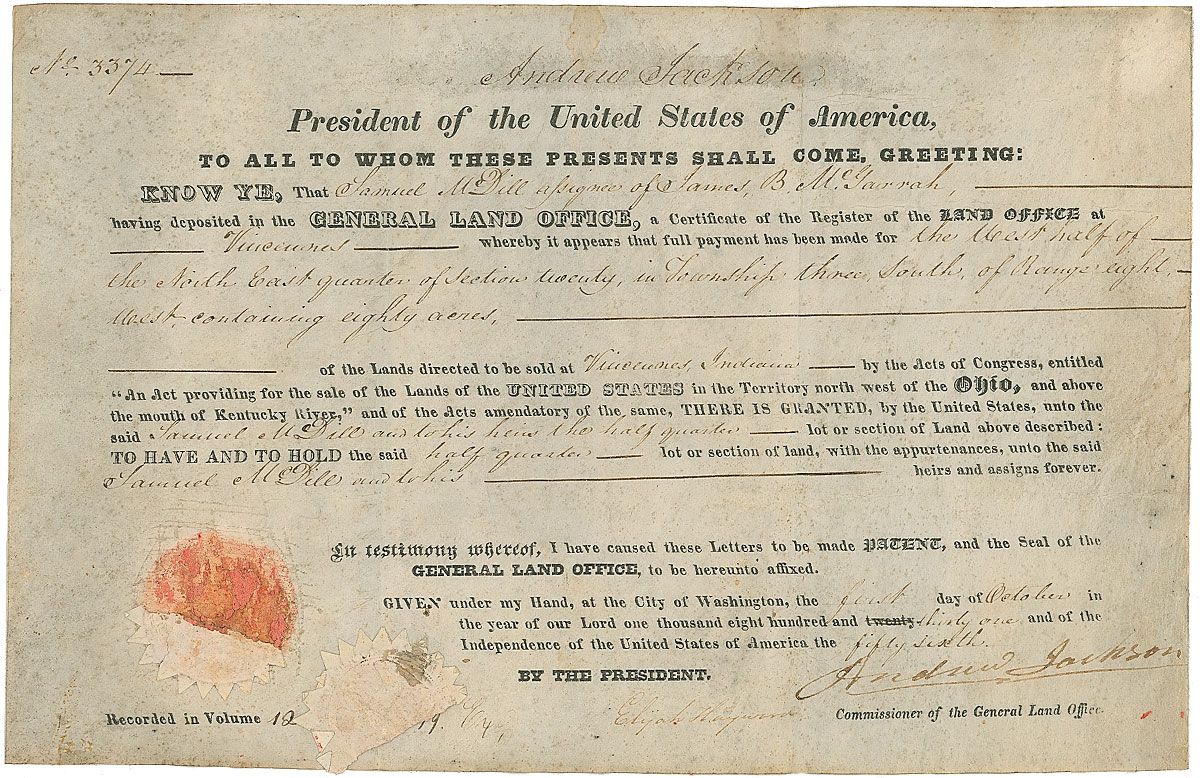 No 3374
Andrew Jackson
President of the United States of America,
TO ALL TO WHOM THESE PRESENTS SHALL COME, GREETING:
KNOW YE, That Samuel McDill assignee of James, B. McGarrah
having deposited in the GENERAL LAND OFFICE, a Certificate of the Register of the LAND OFFICE at
Vincennes whereby it appears that full payment has been made for the West half of
the North East quarter of section twenty, in Township three, South, of Range eight,
West, containing eighty acres,
of the Lands directed to be sold at Vincennes, Indiana by the Acts of Congress, entitled
“An Act providing for the sale of the Lands of the UNITED STATES in the Territory north west of the Ohio, and above
the mouth of Kentucky River,” and of the Acts amendatory of the same, THERE IS GRANTED, by the United States, unto the
said Samuel McDill and to his heirs the half quarter lot or section of Land above described:
TO HAVE AND TO HOLD the said half quarter lot or section of land, with the appurtenances, unto the said
Samuel McDill and to his heirs and assigns forever.
In testimony whereof, I have caused these Letters to be made PATENT, and the Seal of the
GENERAL LAND OFFICE, to be hereunto affixed.
GIVEN under my Hand, at the City of Washington, the first day of October in
the year of our Lord one thousand eight hundred and twenty thirty one and of the
Independence of the United States of America the fifty sixth.
BY THE PRESIDENT. Andrew Jackson
Recorded in Volume 12 Elijah Hayward Commissioner of the General Land Office.